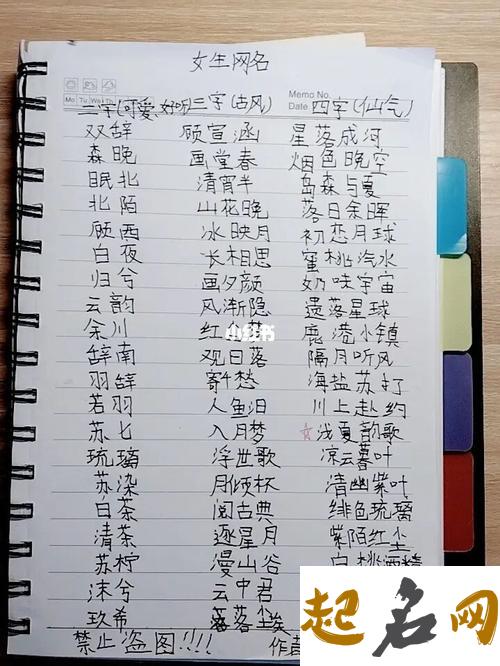 女生网名
Memo No.
Mo Tu We Th Date
二字(可爱、好听) 三字(古风) 四字(仙气)
双辞 顾宣涵 星落成河
森晚 画堂春 烟色晚空
眠北 清宵半 岛森与夏
北陌 山花晚 落日余晖
顾西 冰映月 初恋月球
白夜 长相思 蜜桃汽水
归兮 画夕颜 奶味宇宙
云韵 风渐隐 遗落星球
余川 红 鹿港小镇
小红书
辞南 观日落 隔月听风
羽辞 寄愁 海盐苏打
若羽 人鱼泪 川上赴约
苏七 入月梦 ☆浅夏韵歌
琉璃 浮世歌 凉云暮叶
苏染 月倾杯 清幽紫叶
白茶 阅古典 绯色琉璃
清茶 逐星月 紫陌红尘
苏柠 漫山谷 白桃酒精
沫兮 云中君
玖希 落尘埃
禁止盗图!!!! 作者
起名网